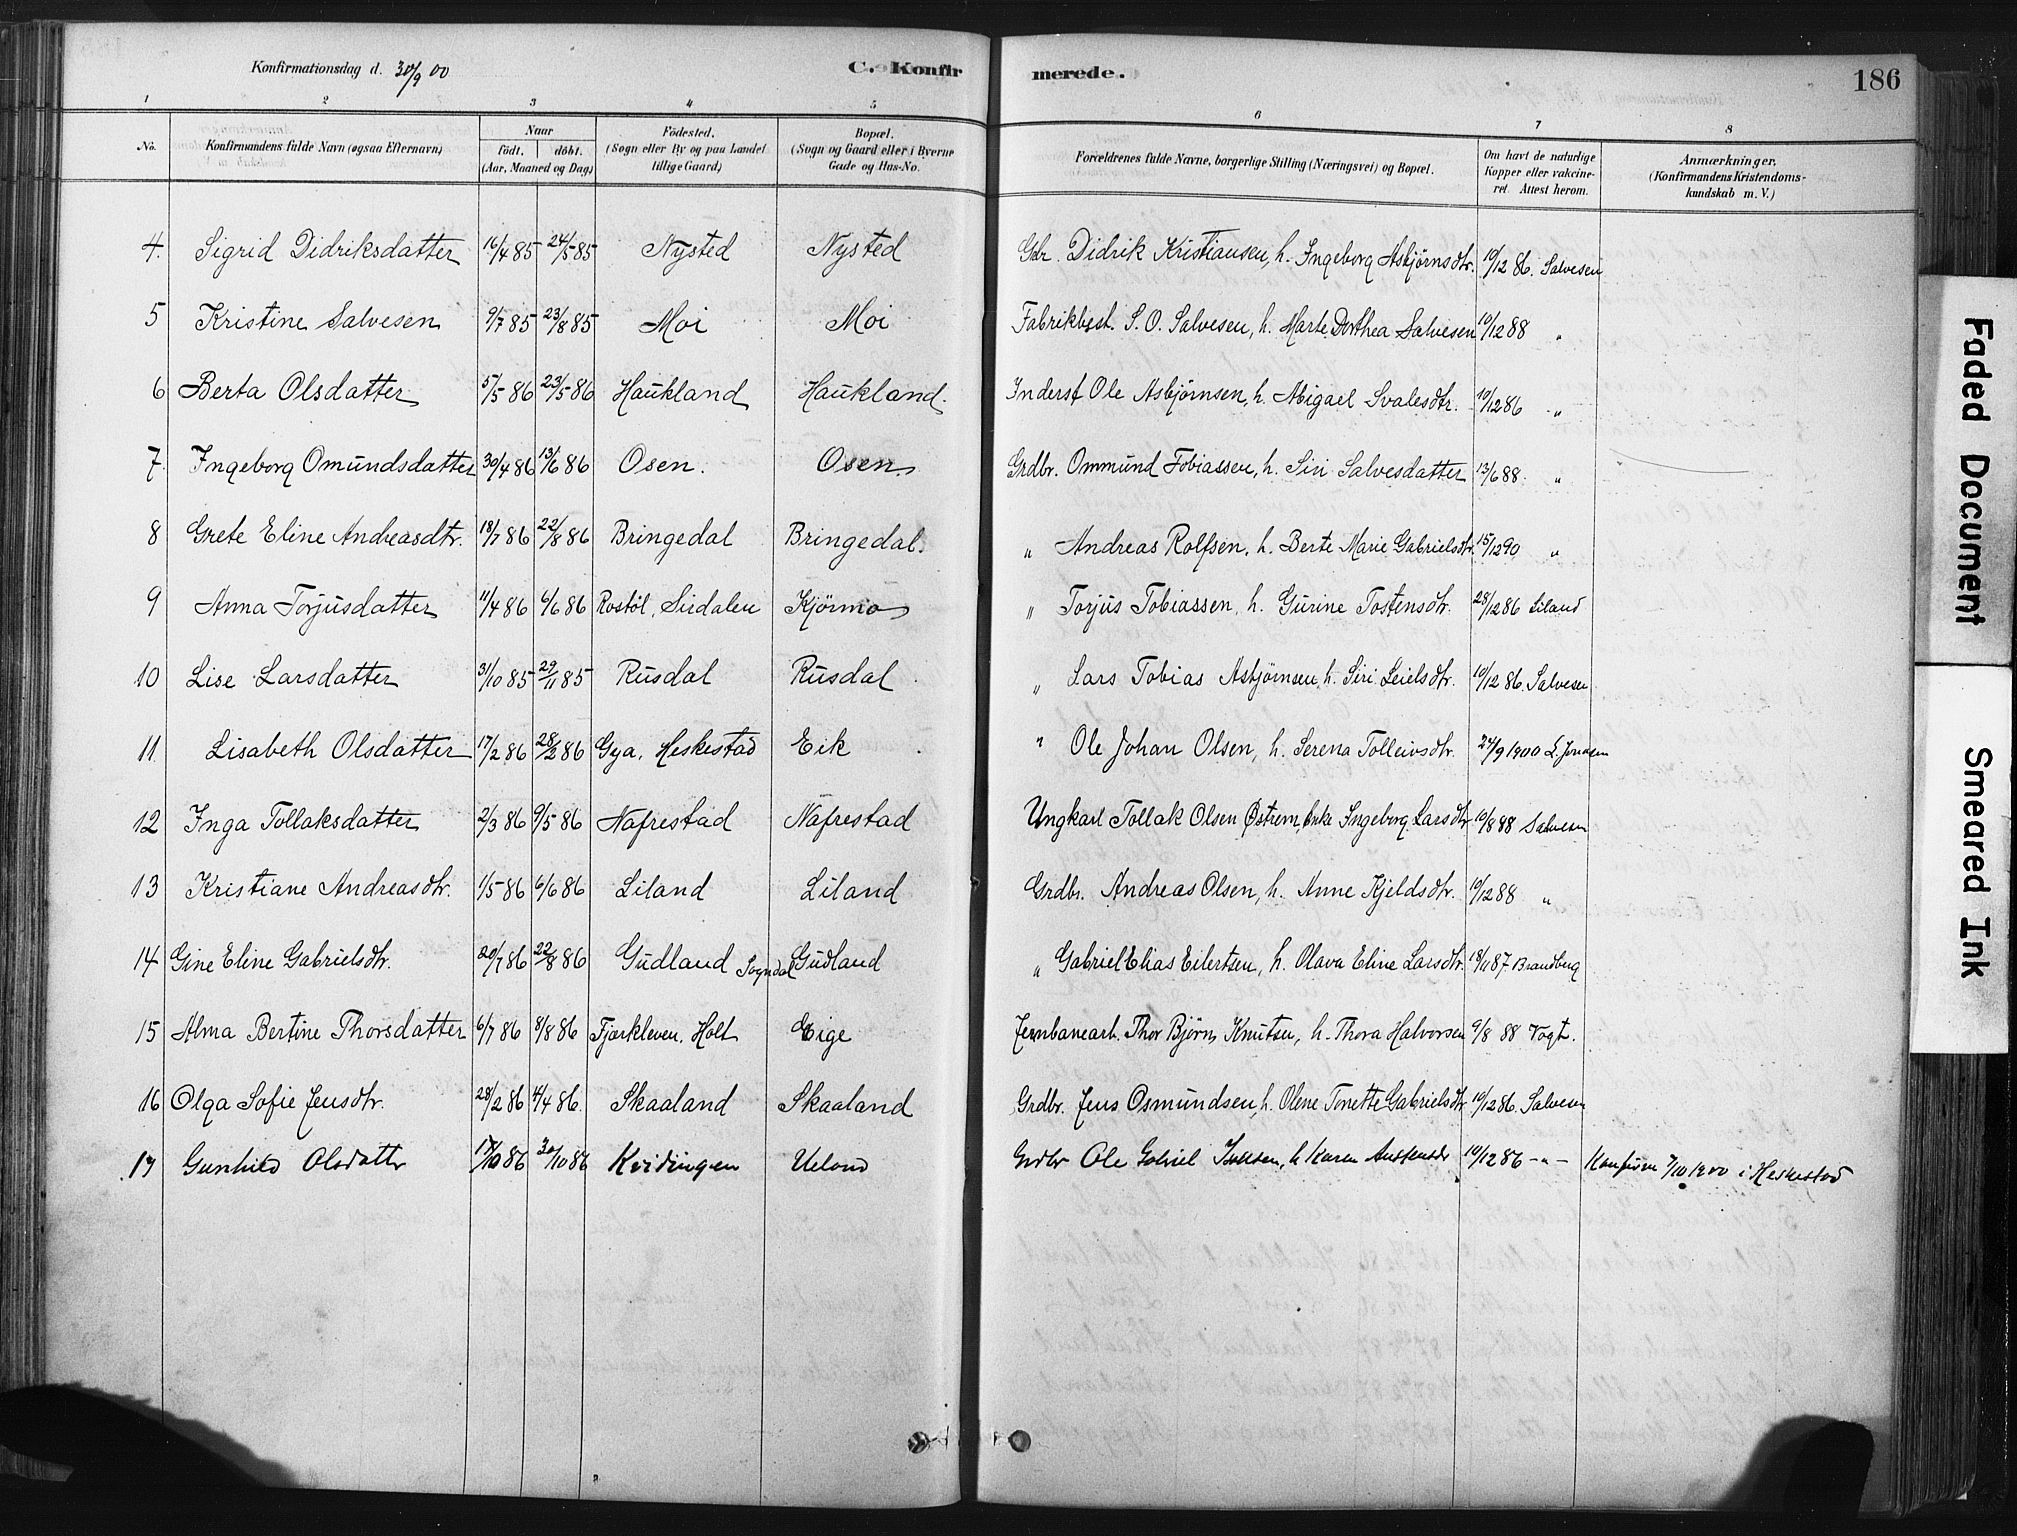 Konfirmationsdag d. 30/9 00 C. Konfirmerede. 186
1 2 3 4 5 6 7 8
No. Konfirmandens fulde Navn (ogsaa Efternavn) Naar födt. döbt. (Aar, Maaned og Dag) Födested. (Sogn eller By og paa Landet tillige Gaard) Bopæl. (Sogn og Gaard eller i Byerne Gade og Hus-No. Forældrenes fulde Navne, borgerlige Stilling (Næringsvei) og Bopæl. Om havt de naturlige Kopper eller vakcineret. Attest herom. Anmærkninger. (Konfirmandens Kristendomskundskab m. V.)
4. Sigrid Didriksdatter 16/4 85 24/5 85 Nysted Nysted Gdr. Didrik Kristiansen, h. Ingeborg Asbjørnsdtr. 10/12 86. Salvesen
5 Kristine Salvesen 9/7 85 23/8 85 Moi Moi Fabrikbest. S. O. Salvesen, h. Marte Dorthea Salvesen 10/12 88 "
6 Berta Olsdatter 5/5 86 23/5 86 Haukland Haukland. Inderst Ole Asbjørnsen, h. Abigael Svalesdtr. 10/12 86 "
7. Ingeborg Omundsdatter 30/4 86 13/6 86 Osen. Osen. Grdbr. Ommund Tobiassen, h. Siri Salvesdatter 13/6 88. "
8 Grete Eline Andreasdtr. 18/7 86 22/8 86 Bringedal Bringedal. " Andreas Rolfsen, h. Berte Marie Gabrielsdtr. 15/12 90 "
9 Anna Torjusdatter 11/4 86 6/6 86 Rostöl, Sirdalen Kjörmo " Torjus Tobiassen, h. Gurine Tostensdtr. 28/12 86 Liland
10 Lise Larsdatter 31/10 85 29/11 85 Rusdal Rusdal " Lars Tobias Asbjørnsen, h. Siri Leielsdtr. 10/12 86. Salvesen
11. Lisabeth Olsdatter 17/2 86 28/2 86 Gya, Heskestad Eik " Ole Johan Olsen, h. Serena Tolleivsdtr. 24/9 1900 L. Jonassen
12 Inga Tollaksdatter 2/3 86 9/5 86 Nafrestad Nafrestad Ungkarl Tollak Olsen Østrem, Enke Ingeborg Larsdtr 10/8 88 Salvesen
13 Kristiane Andreasdtr. 1/5 86 6/6 86 Liland Liland Grdbr. Andreas Olsen, h. Anne Kjeldsdtr. 10/12 88 "
14 Gine Eline Gabrielsdtr. 20/7 86 22/8 86 Gudland Sogndal Gudland " Gabriel Elias Eilertsen, h. Olava Eline Larsdtr. 18/11 87. Brandberg
15 Alma Bertine Thorsdatter 6/7 86 8/8 86 Fjærkleven, Holt Eige Jernbanearb. Thor Bjørn Knutsen, h. Thora Halvorsen 9/8 88 Vogt.
16 Olga Sofie Jensdtr. 28/2 86 4/4 86. Skaaland Skaaland Grdbr. Jens Osmundsen, h. Olene Tonette Gabrielsdtr 10/12 86. Salvesen
17 Gunhild Olsdattr 17/10 86 30/10 86 Kvidingen Ueland Grdbr Ole Gabriel h Karen 10/12 86 - " - Konfirm 7/10 1900 i Heskestad
Faded Document
Smeared Ink